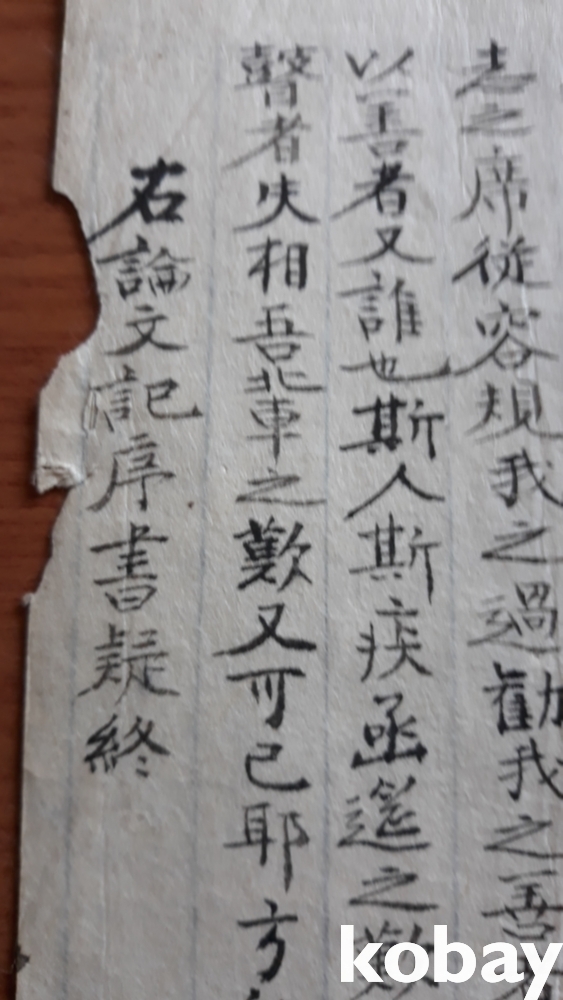 志之席從容規我之過勸我之善
以善者又誰也斯人斯疾函筵之歎
瞽者失相吾非車之歎又可已耶方
右論文記序書疑終
kobay